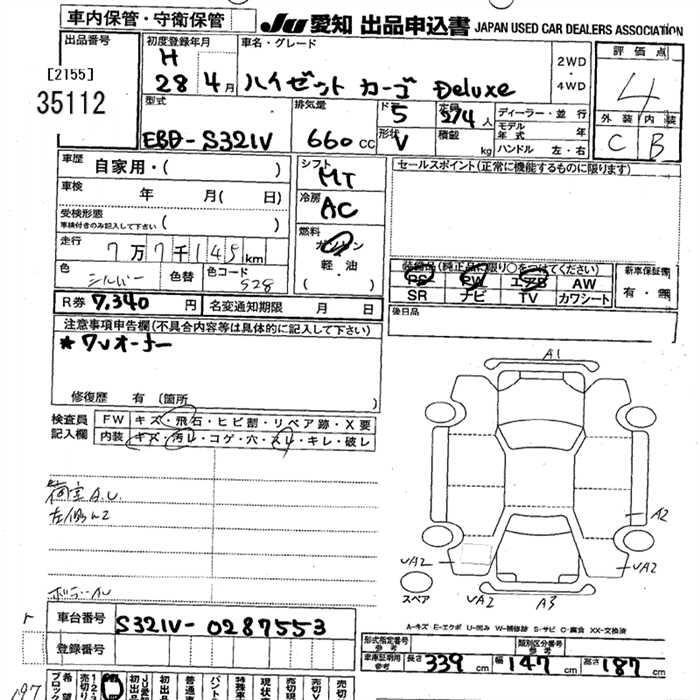 車内保管・守衛保管
JU 愛知 出品申込書 JAPAN USED CAR DEALERS ASSOCIATION
出品番号
[2155]
35112
初度登録年月
H
28年4月
車名・グレード
ハイゼット カーゴ Deluxe
2WD
・
4WD
評価点
4
外装 内装
C B
型式
EBD-S321V
排気量
660 CC
ドア
5
形状
V
定員
2/4人
積載
kg
ディーラー・並行
モデル年式 年
ハンドル 左・右
車歴
自家用・( )
車検
年 月( 日)
受検形態
車検付きのみ記入して下さい ( )
走行
7万7千145km
色
シルバー
色替
色コード
S28
シフト
MT
冷房
AC
燃料
ガソリン
軽・油
( ・ )
セールスポイント(正常に機能するものに限ります)
装備品(純正品に限り○をつけてください)
PS PW エアB AW
SR ナビ TV カワシート
新車保証書
有・無
後日品
R券 7,340 円
名変通知期限 月 日
注意事項申告欄(不具合内容等は具体的に記入して下さい)
*ワンオーナー
修復歴 有 (箇所 )
検査員記入欄
FW キズ・飛石・ヒビ割・リペア跡・X要
内装 キズ・汚レ・コゲ・穴・スレ・キレ・破レ
荷室A.U.
A1
A2
UA2
UA2
UA2
A3
スペア
A-キズ E-エクボ U-凹み W-補修跡 S-サビ C-腐食 XX-交換済
車台番号
S321V-0287553
登録番号
形式指定番号
参考
類別区分番号
参考
車庫証明用
参考
長さ 339 cm 幅 147 cm 高さ 187 cm